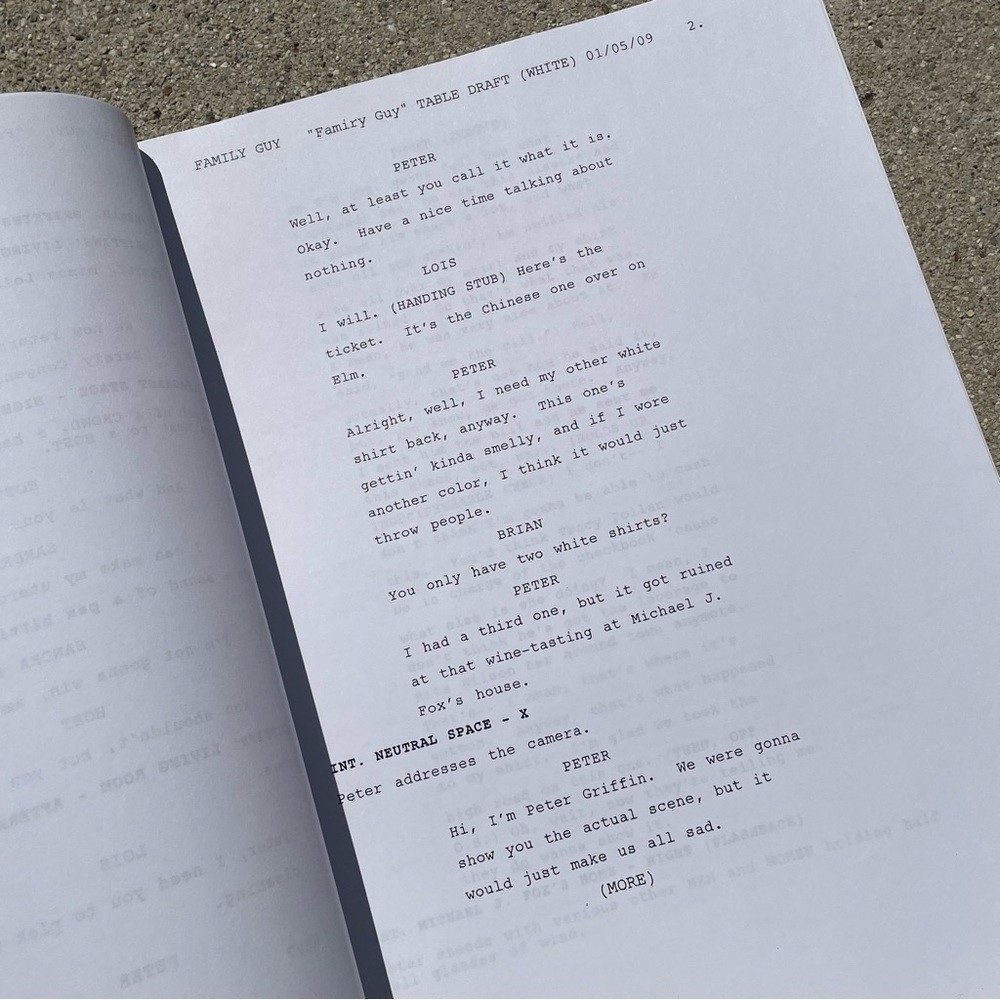 FAMILY GUY "Famiry Guy" TABLE DRAFT (WHITE) 01/05/09 2.
PETER
Well, at least you call it what it is.
Okay. Have a nice time talking about
nothing.
LOIS
I will. (HANDING STUB) Here's the
ticket. It's the Chinese one over on
Elm.
PETER
Alright, well, I need my other white
shirt back, anyway. This one's
gettin' kinda smelly, and if I wore
another color, I think it would just
throw people.
BRIAN
You only have two white shirts?
PETER
I had a third one, but it got ruined
at that wine-tasting at Michael J.
Fox's house.
INT. NEUTRAL SPACE - X
Peter addresses the camera.
PETER
Hi, I'm Peter Griffin. We were gonna
show you the actual scene, but it
would just make us all sad.
(MORE)